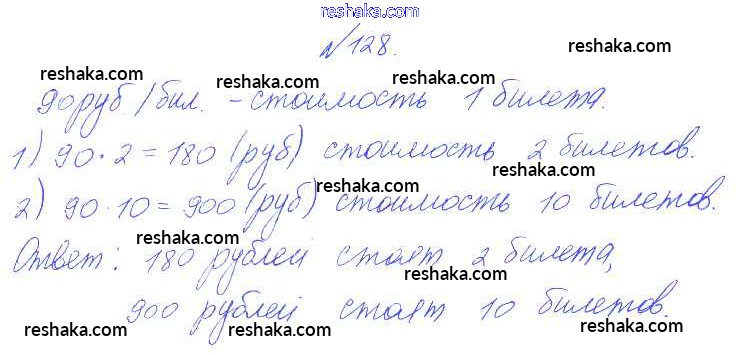 reshaka.com
№128.
reshaka.com
reshaka.com reshaka.com reshaka.com
90 руб/бил. - стоимость 1 билета.
reshaka.com reshaka.com
1) 90·2=180 (руб) стоимость 2 билетов.
reshaka.com reshaka.com
2) 90·10=900 (руб) стоимость 10 билетов.
reshaka.com reshaka.com
Ответ: 180 рублей стоят 2 билета,
reshaka.com reshaka.com
900 рублей стоят 10 билетов.
reshaka.com reshaka.com reshaka.com